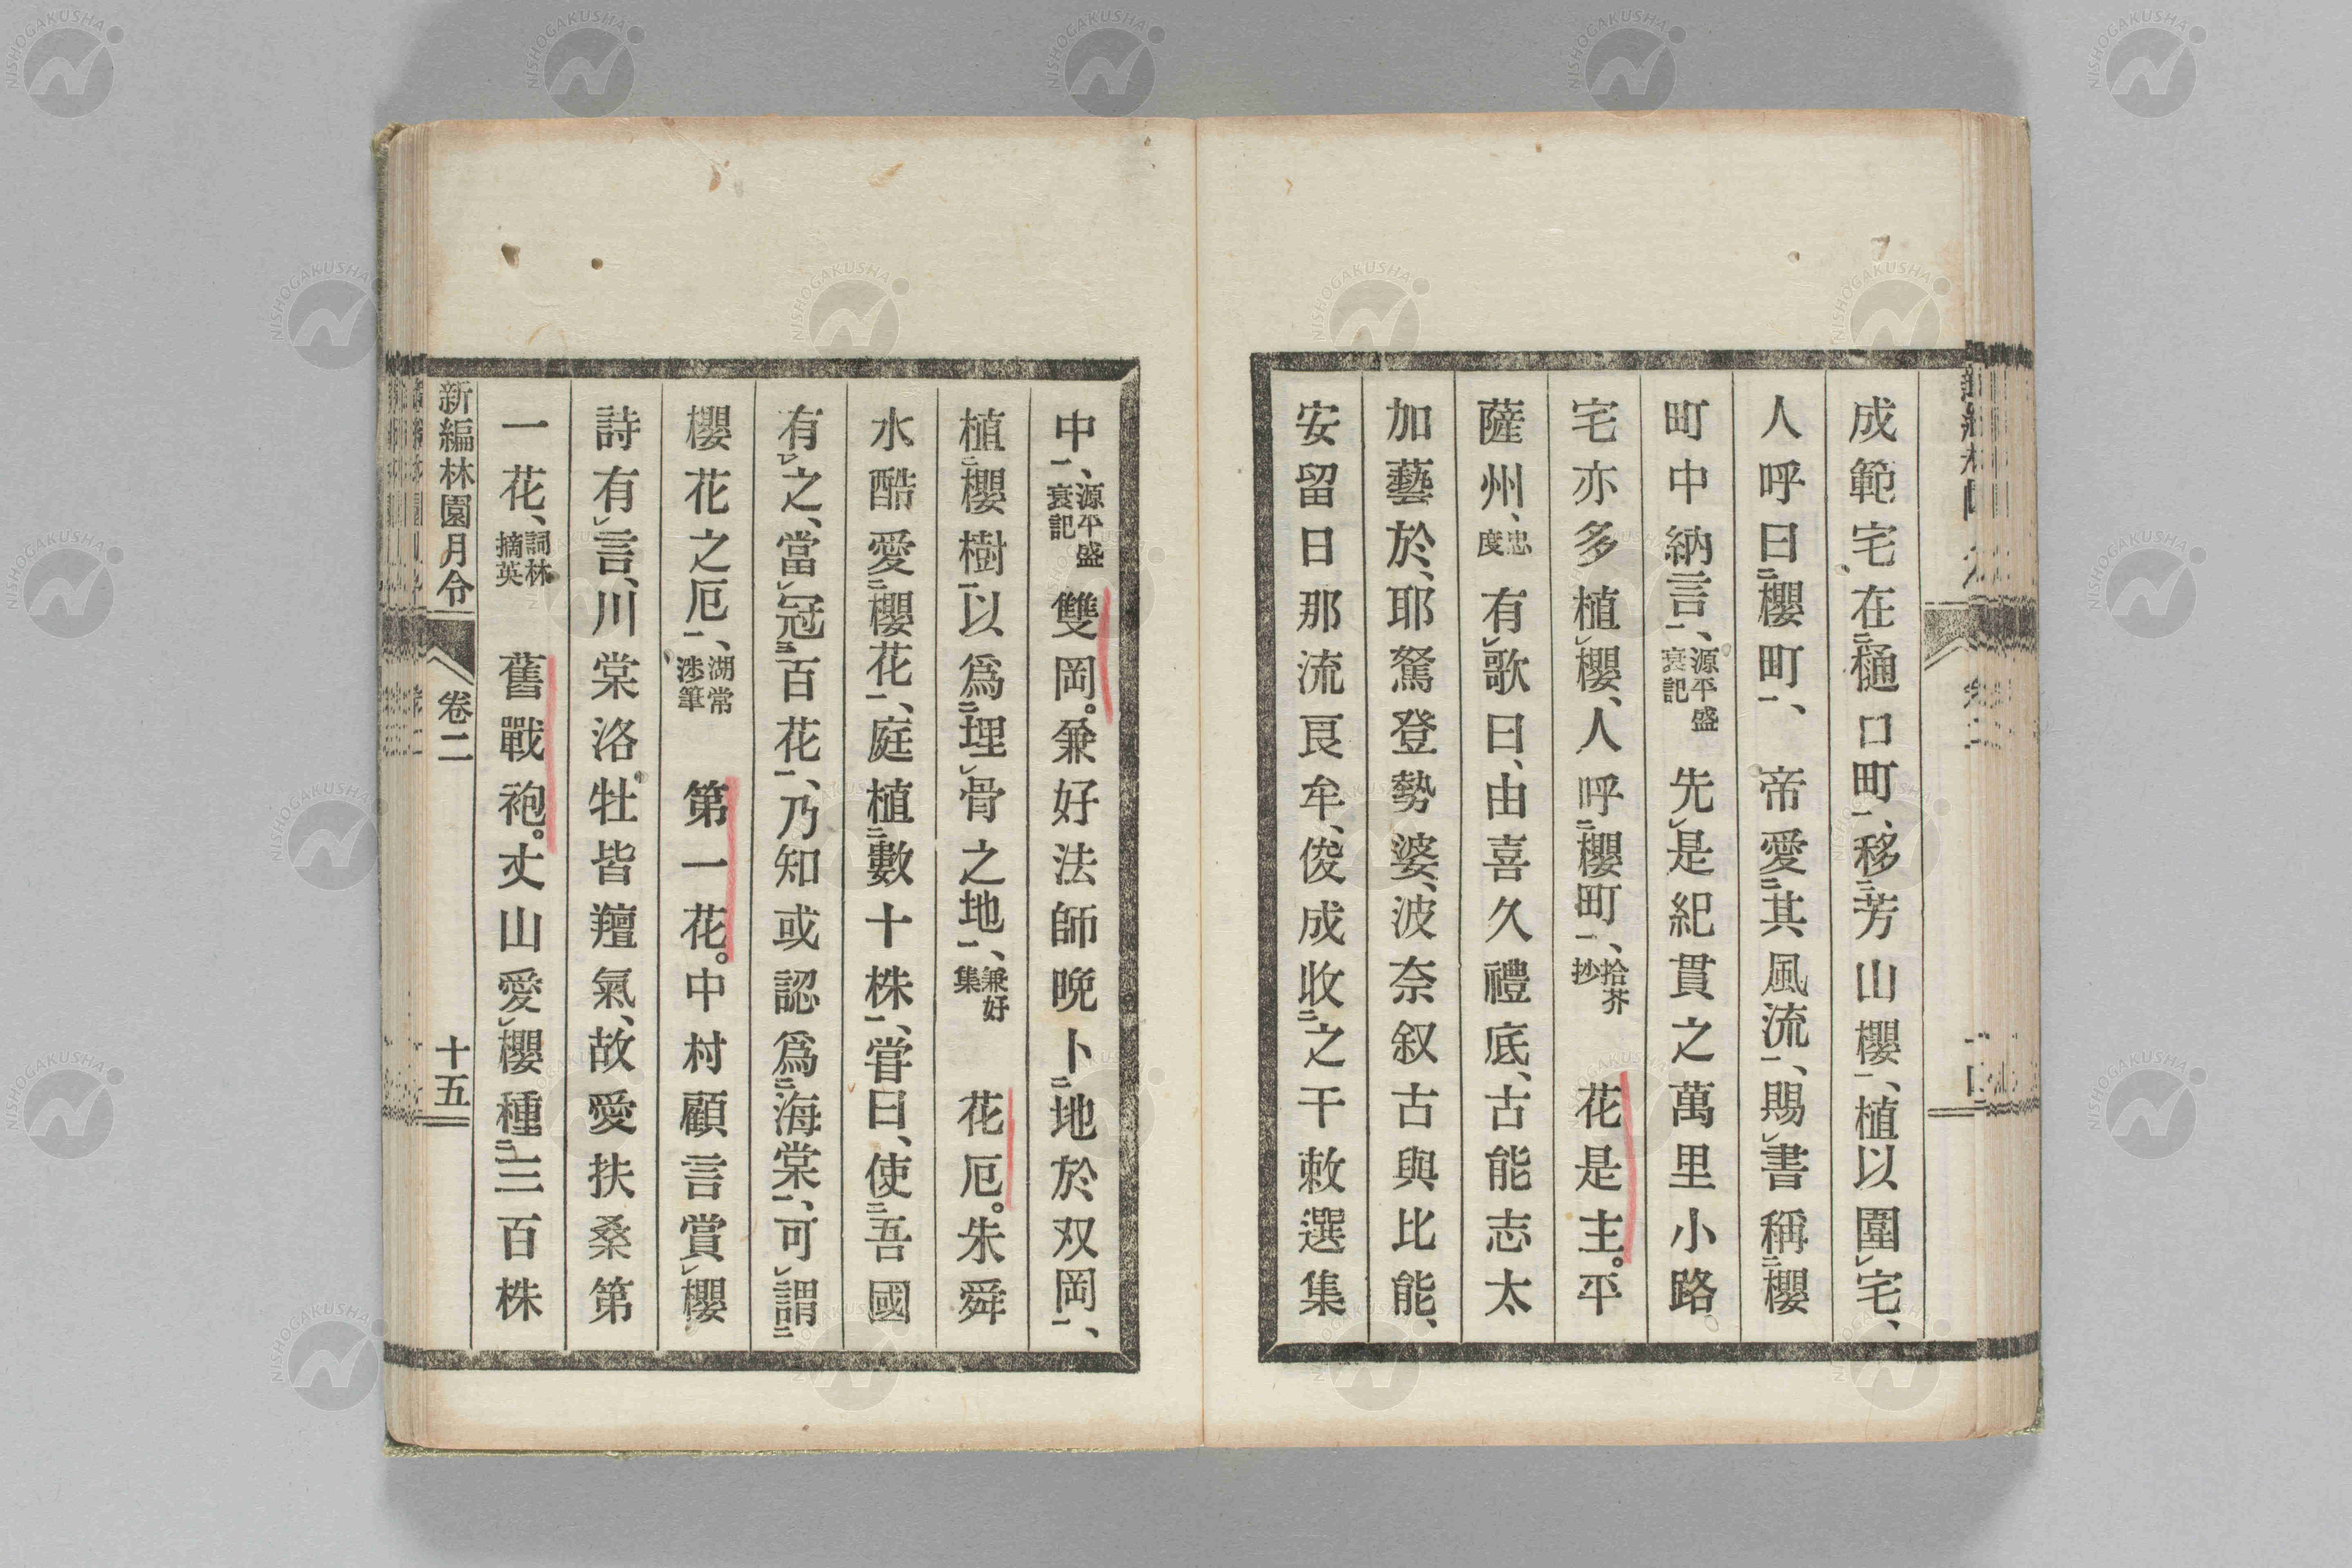 成範宅在㆓樋口町㆒、移㆓芳山櫻㆒、植以圍㆑宅、
人呼曰㆓櫻町㆒、帝愛㆓其風流㆒、賜㆑書稱㆓櫻
町中納言㆒、源平盛衰記 先㆑是紀貫之萬里小路
宅亦多植㆑櫻、人呼㆓櫻町㆒、拾芥抄 花是主。平
薩州、忠度 有㆑歌曰、由喜久禮底、古能志太
加藝於、耶駑登勢婆、波奈叙古與比能、
安留日那流良牟、俊成收㆓之千敕選集
中㆒、源平盛衰記 雙岡。兼好法師晚卜㆓地於双岡㆒、
植㆓櫻樹㆒以爲㆓埋㆑骨之地㆒、兼好集 花厄。朱舜
水酷愛㆓櫻花㆒、庭植㆓數十株㆒、嘗曰、使㆘吾國
有㆑之、當㆑冠㆓百花㆒、乃知或認爲㆓海棠㆒、可㆑謂㆓
櫻花之厄㆒、湖常涉筆 第一花。中村顧言賞㆑櫻
詩有㆑言、川棠洛牡皆羶氣、故愛扶桑第
一花、詞林摘英 舊戰袍。丈山愛㆑櫻種㆓三百株
新編林園月令 卷二 十五
NISHOGAKUSHA